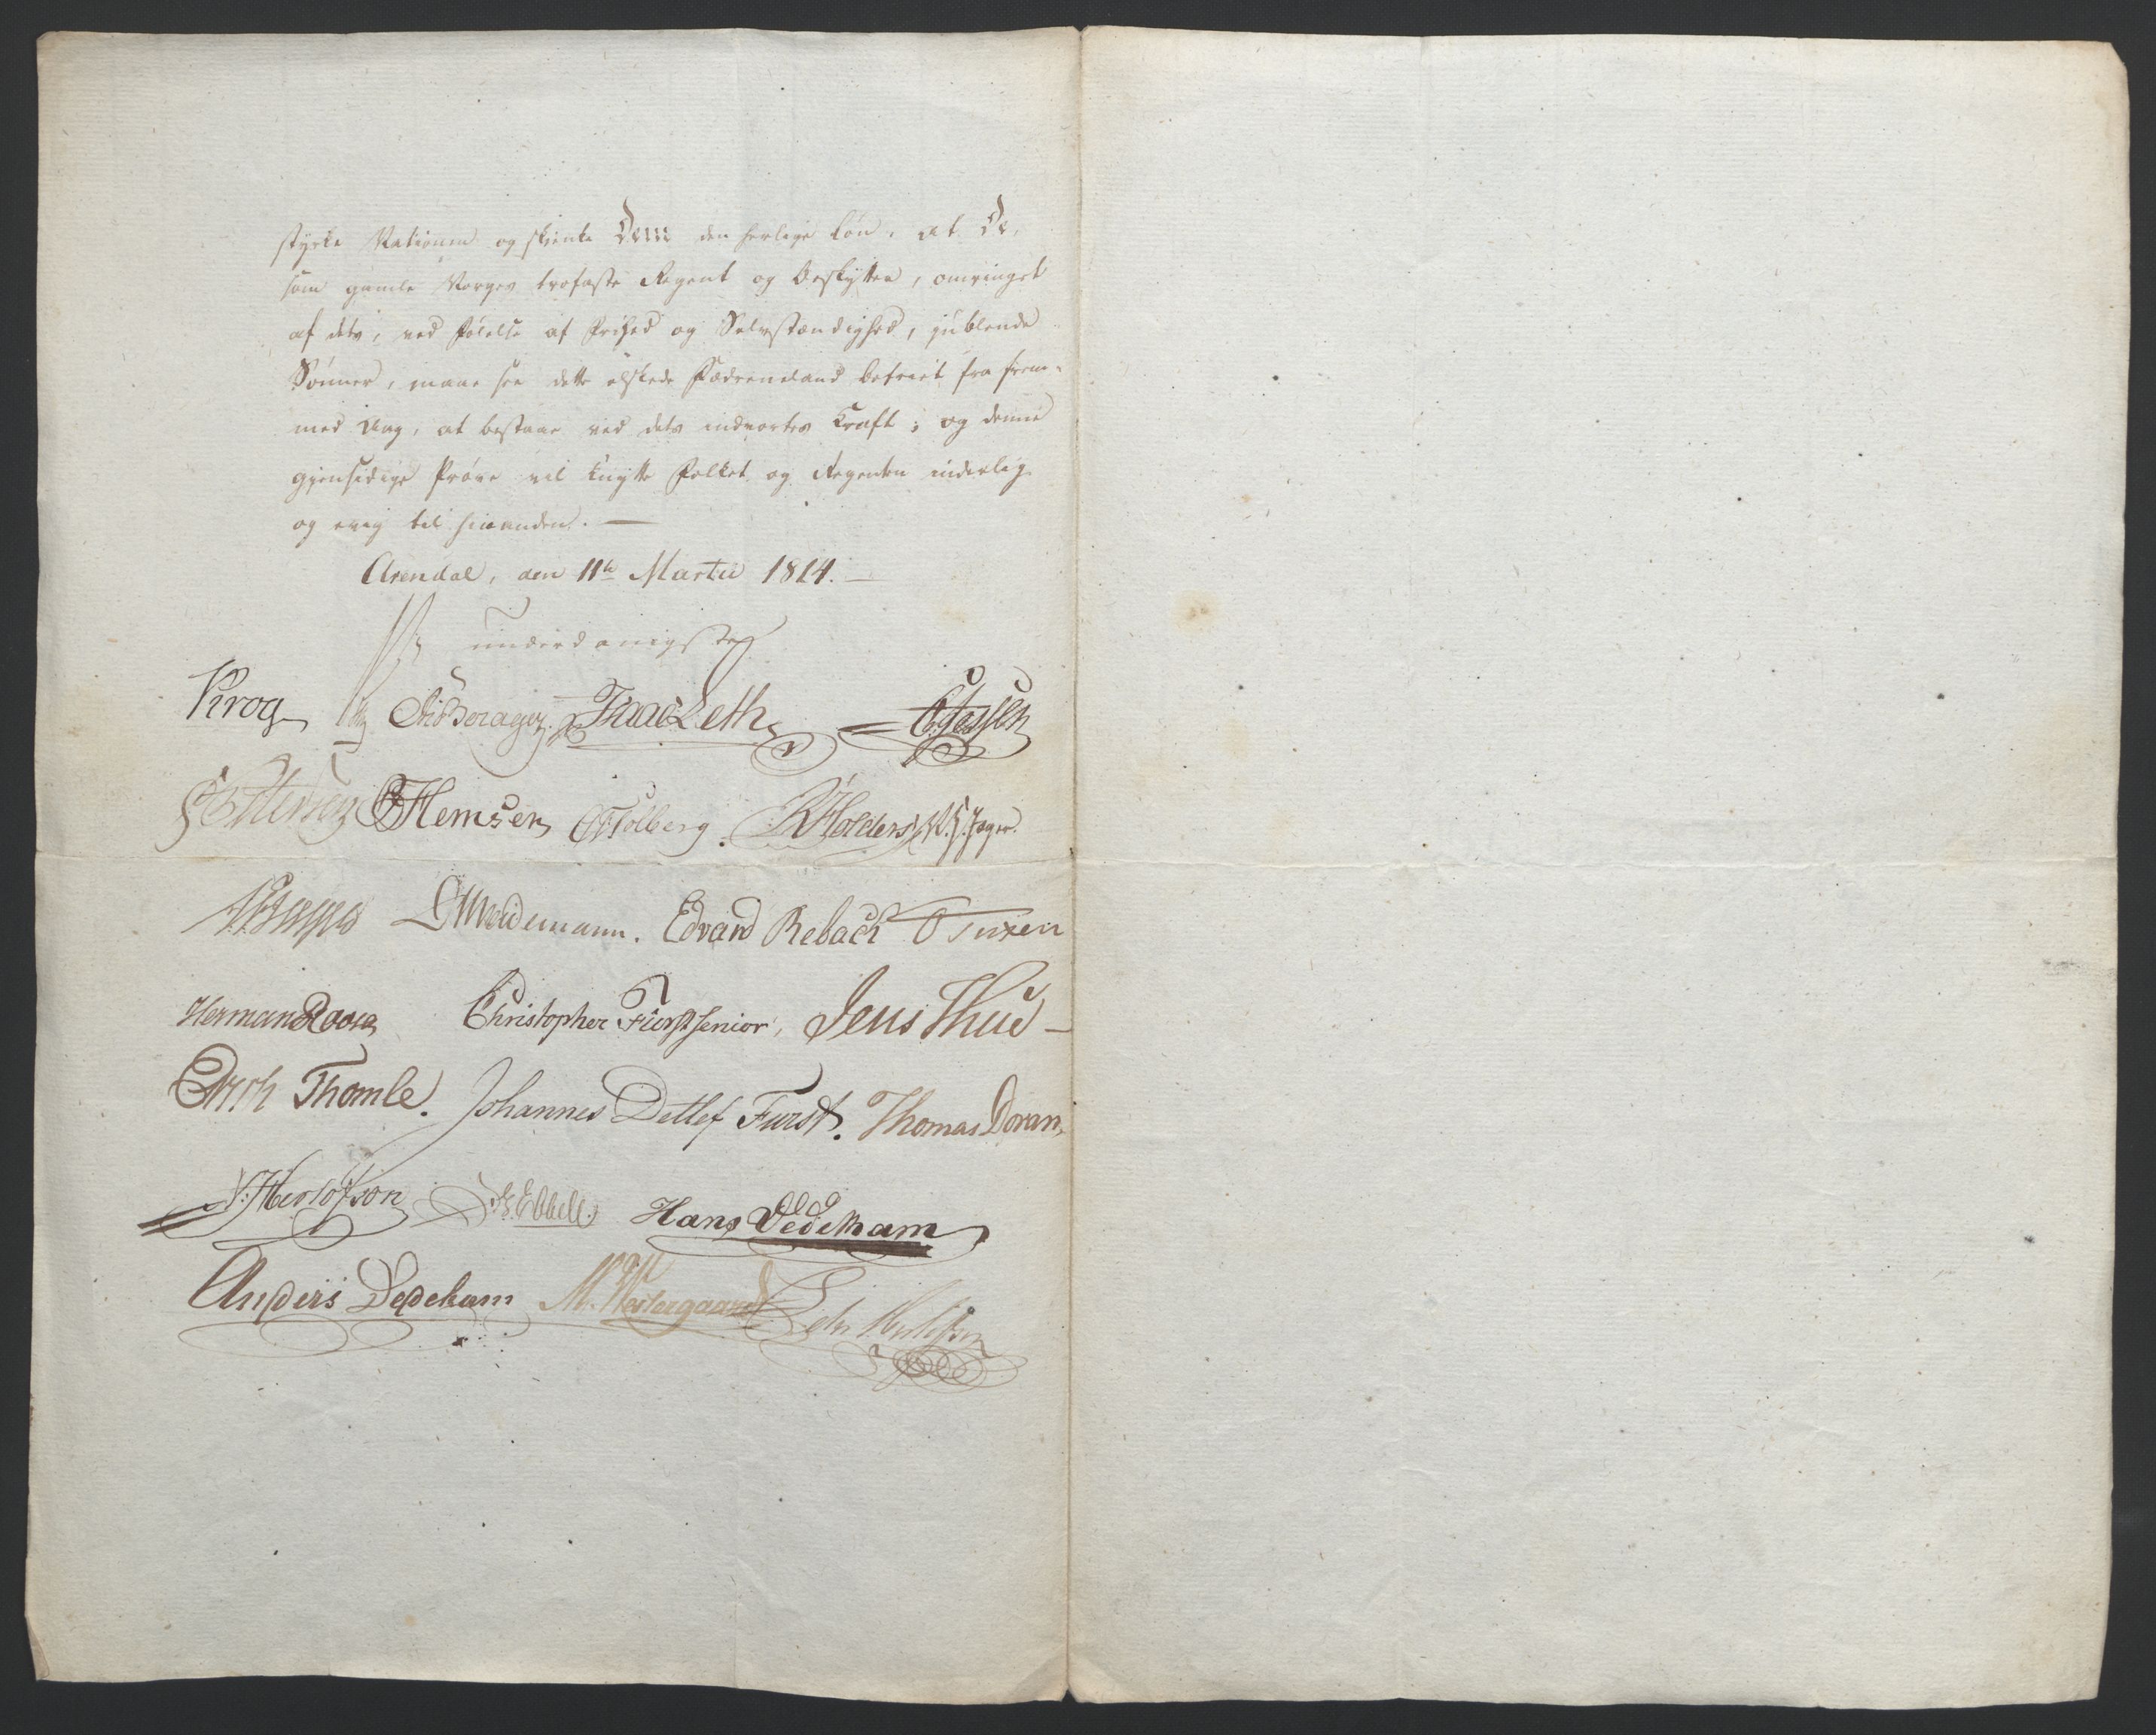 styrke Nationen og skienke Dem den herlige Løn, at De,
som gamle Norges trofaste Regent og Beskytter, omringet
af dets, ved Følelse af Frihed og Selvstændighed, jublende
Sønner, maae see dette elskede Fædreneland befriet fra frem-
med Aag, at bestaae ved dets indvortes Kraft; og denne
gjensidige Prøve vil knytte Folket og Regenten inderlig
og evig til hinanden. —
Arendal, den 11te Martii 1814. —
underdanigst
Krog Isaac Leth C. Jessen
Hemsen Tolberg Holders Jager.
Weidemann. Edvard Rebach O Tuxen
Herman Roosen Christopher Fürst senior, Jens Thue —
Thomle. Johannes Detlef Furst. Thomas Doran,
Herlofson Ebbell. Hans Dedekam
Anders Dedekam M. Westergaard Peder Herlofson